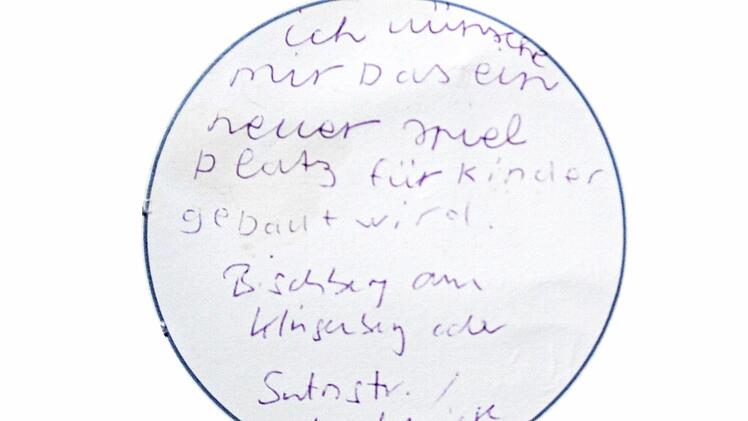 ich wünsche
mir Das ein
neuer spiel
platz für Kinder
gebaut wird.
Bischberg am
Klingerberg oder